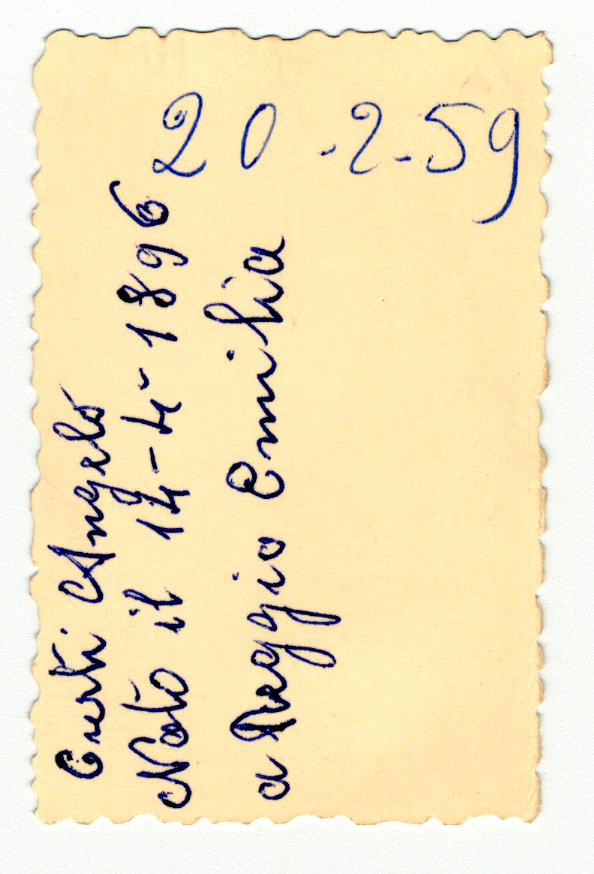 20-2-59
Curti Angelo
Nato il 14-4-1896
a Reggio Emilia